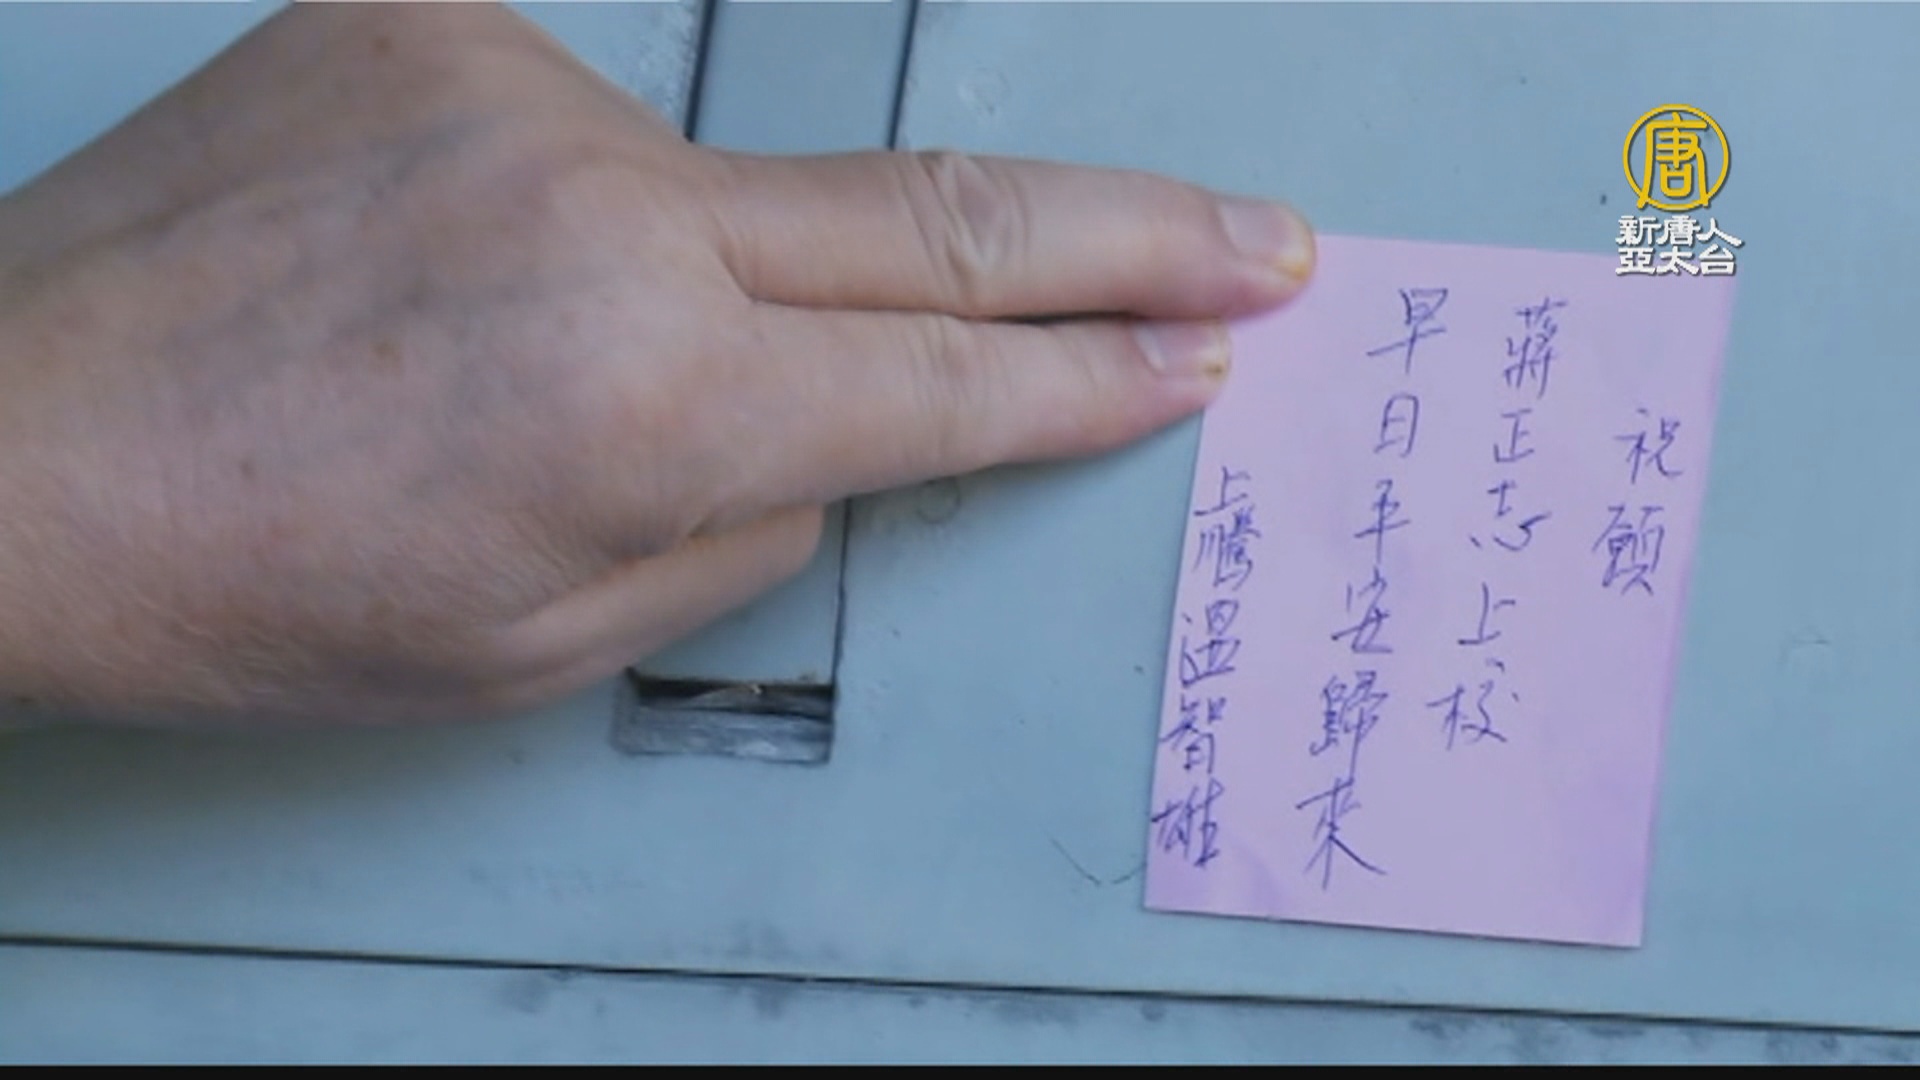 祝願
蔣正志上校
早日平安歸來
上騰溫智雄
唐
新唐人
亞太台